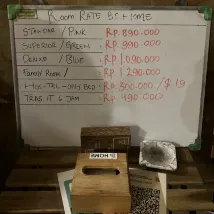 ROOM RATE BS HOME
STANDAR / PINK RP. 890.000
SUPERIOR / GREEN RP. 990.000
/ BLUE RP. 1.090.000
FAMILY ROOM / RP. 1.290.000
RP. 300.000 / $ 19
TRANSIT 6 JAM RP. 490.000